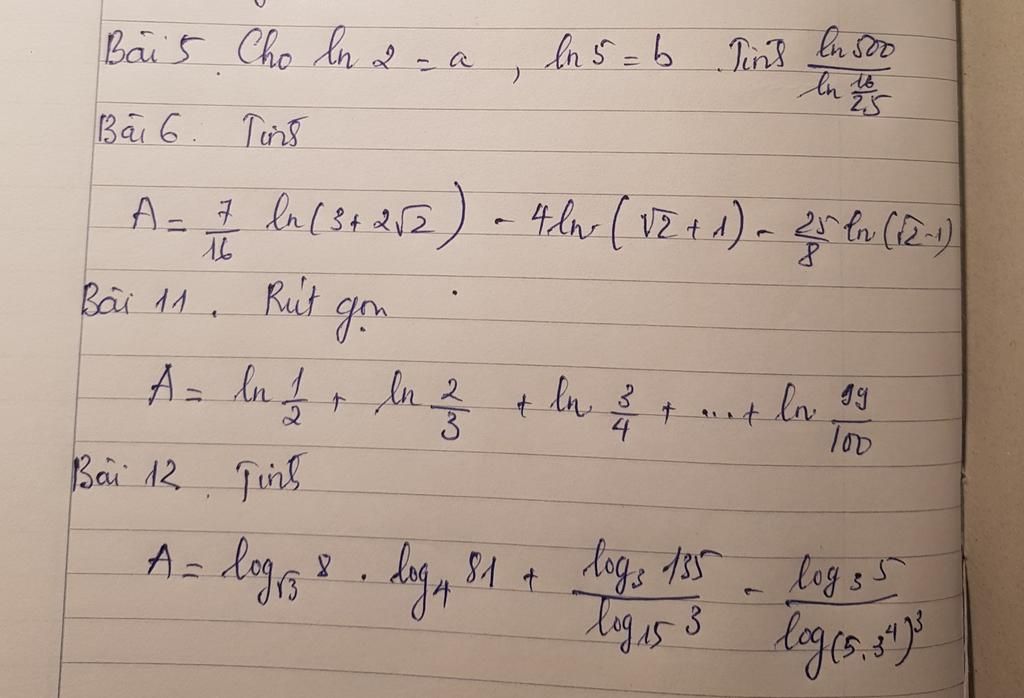 Bài 5. Cho ln 2 = a , ln 5 = b . Tính ln 500 / ln 16/25
Bài 6. Tính
A = 7/16 ln(3+2√2) - 4ln(√2+1) - 25/8 ln(√2-1)
Bài 11. Rút gọn
A = ln 1/2 + ln 2/3 + ln 3/4 + ... + ln 99/100
Bài 12. Tính
A = log_√3 8 . log_4 81 + log_3 135 / log_15 3 - log_3 5 / log_(5.3^4) 3